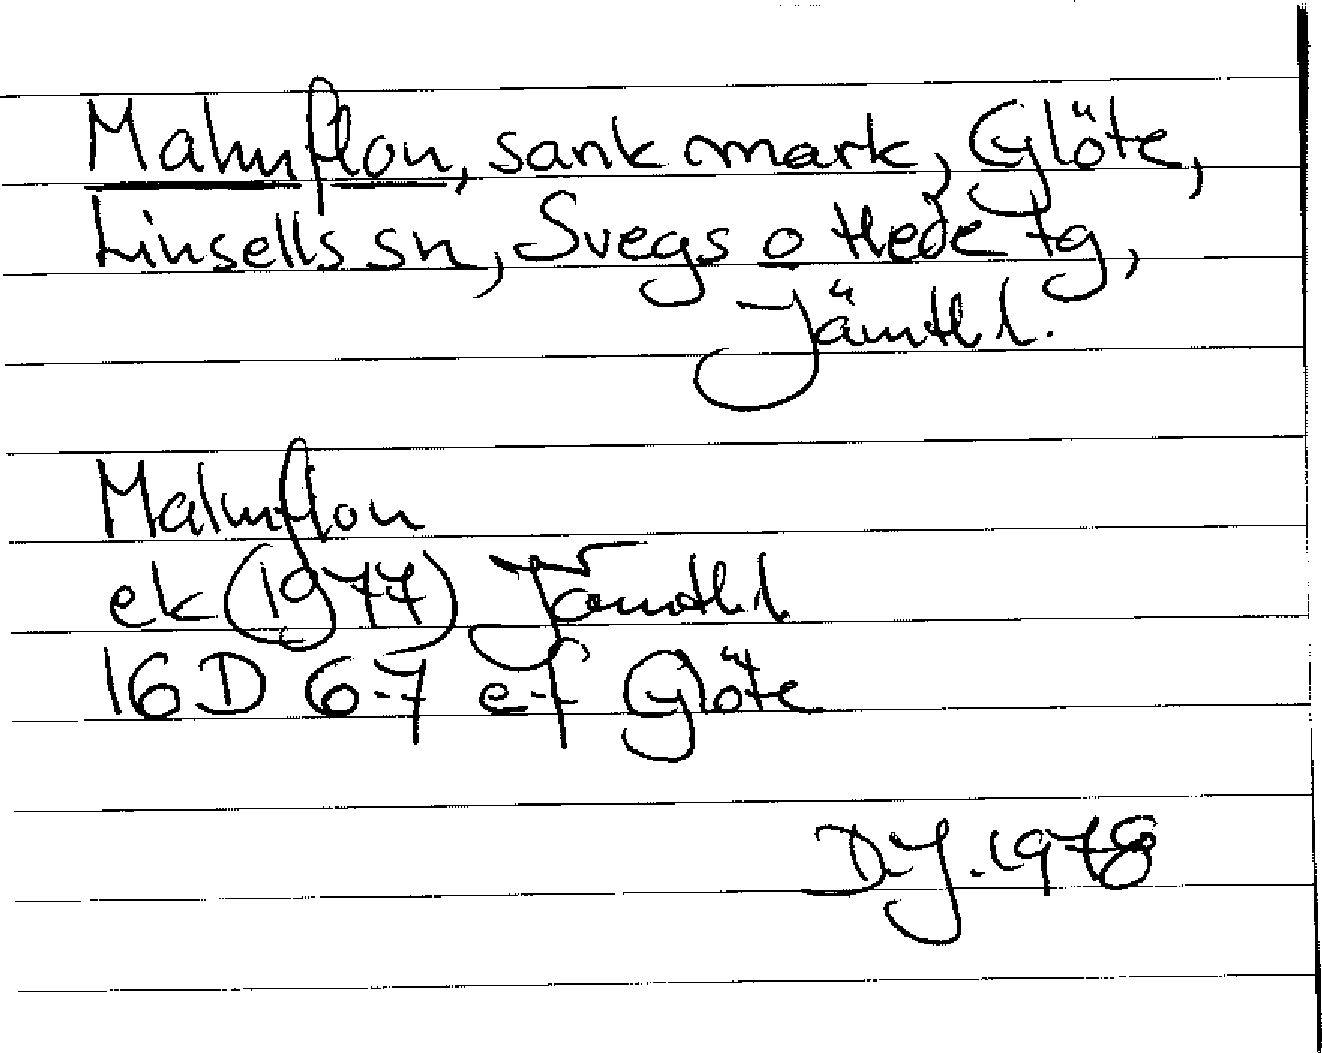 Malmflon, sank mark, Glöte,
Linsells sn, Svegs o Hede tg,
Jämtl l.
Malmflon
ek (1977) Jämtl. l
16D 6-7 e-f Glöte
D.J. 1978